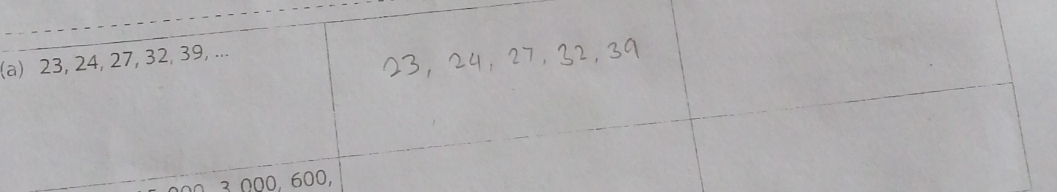 (a) 23, 24, 27, 32, 39, ...
23, 24, 27, 32, 39
3 000, 600,